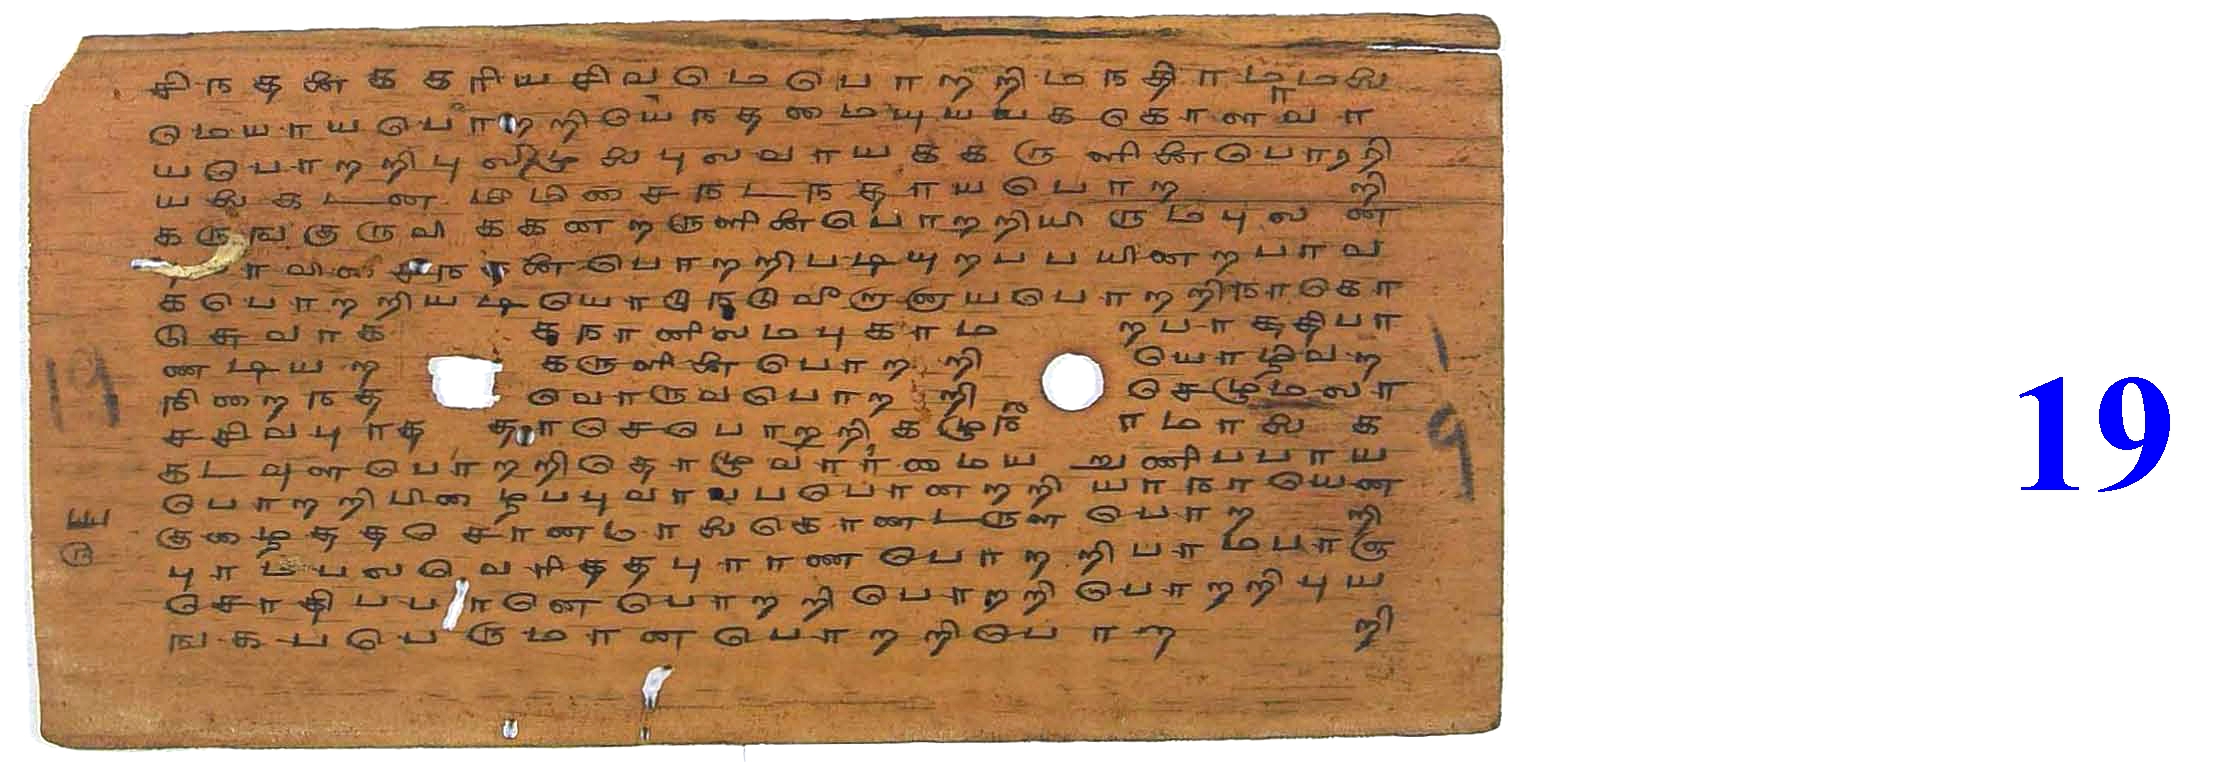 சிநதனைககரியசிவமெபொறறிமநதிரமாமலை
மெயாயபொறறியெநதமையுயயககொளவா
யபொறறிபுலிமுலைபுலவாயககருளினைபொறறி
யலைகடனமீமிசைநடநதாயபொற றி
கருஙகுருவிககனறருளினைபொறறியிருமபுலன
புலரவிசைநதனைபொறறிபடியுறபபயினறபாவ
கபொறறியடியொடுநடுவீறானாயபொறறிநரகொ
டுசுவரகக நானிலமபுகாம றபரகதிபா
ணடியற கருளினைபொறறி யொழிவற
நிறைநத வொருவபொறறி செழுமலர
சசிவபுரத தரசெபொறறி கழுநீ ரமாலை க
கடவுளபொறறிதொழுவாரமைய றுணிபபாய
பொறறிபிழைபபுவாயபபொனறறி யாநாயென
குழைததசொனமாலைகொணடருள பொற றி
புரமபலவெரிததபுராணபொறறிபரமபரஞ
சொதிபபரனெபொறறிபொறறிபொறறிபுய
ஙகபபெருமானபொறறிபொற றி
19
19